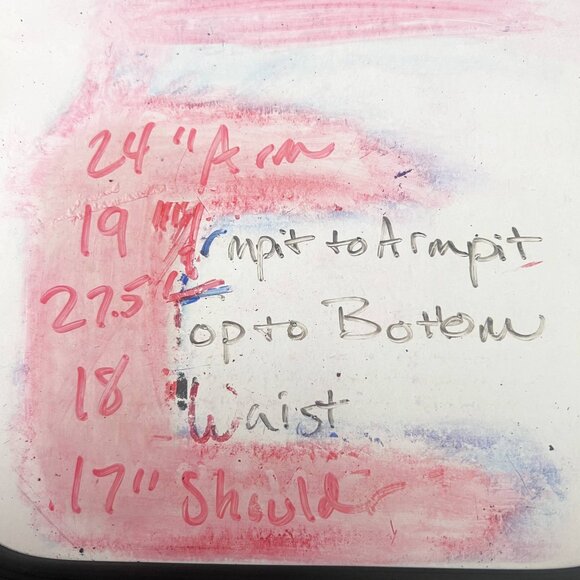 24" Arm
19" Armpit to Armpit
27.5" Top to Bottom
18" Waist
17" Should